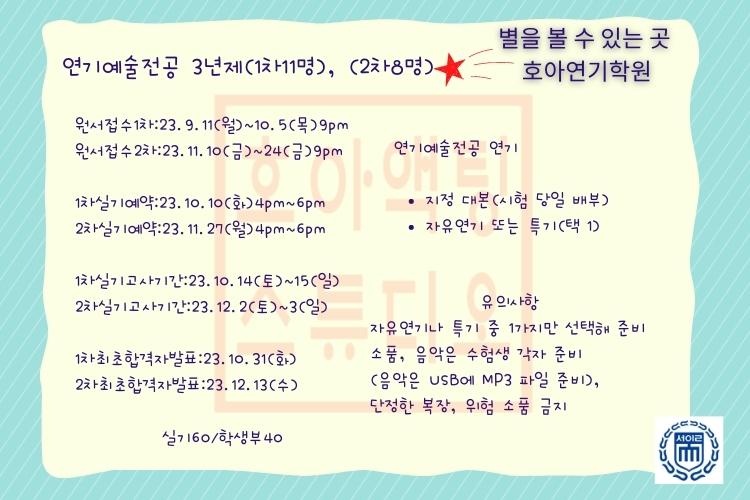 별을 볼 수 있는 곳
호아연기학원
연기예술전공 3년제(1차11명), (2차8명)
원서접수1차:23.9.11(월)~10.5(목)9pm
원서접수2차:23.11.10(금)~24(금)9pm
1차실기예약:23.10.10(화)4pm~6pm
2차실기예약:23.11.27(월)4pm~6pm
1차실기고사기간:23.10.14(토)~15(일)
2차실기고사기간:23.12.2(토)~3(일)
1차최초합격자발표:23.10.31(화)
2차최초합격자발표:23.12.13(수)
실기60/학생부40
연기예술전공 연기
• 지정 대본(시험 당일 배부)
• 자유연기 또는 특기(택 1)
유의사항
자유연기나 특기 중 1가지만 선택해 준비
소품, 음악은 수험생 각자 준비
(음악은 USB에 MP3 파일 준비),
단정한 복장, 위험 소품 금지
호아액팅
스튜디오
서이르